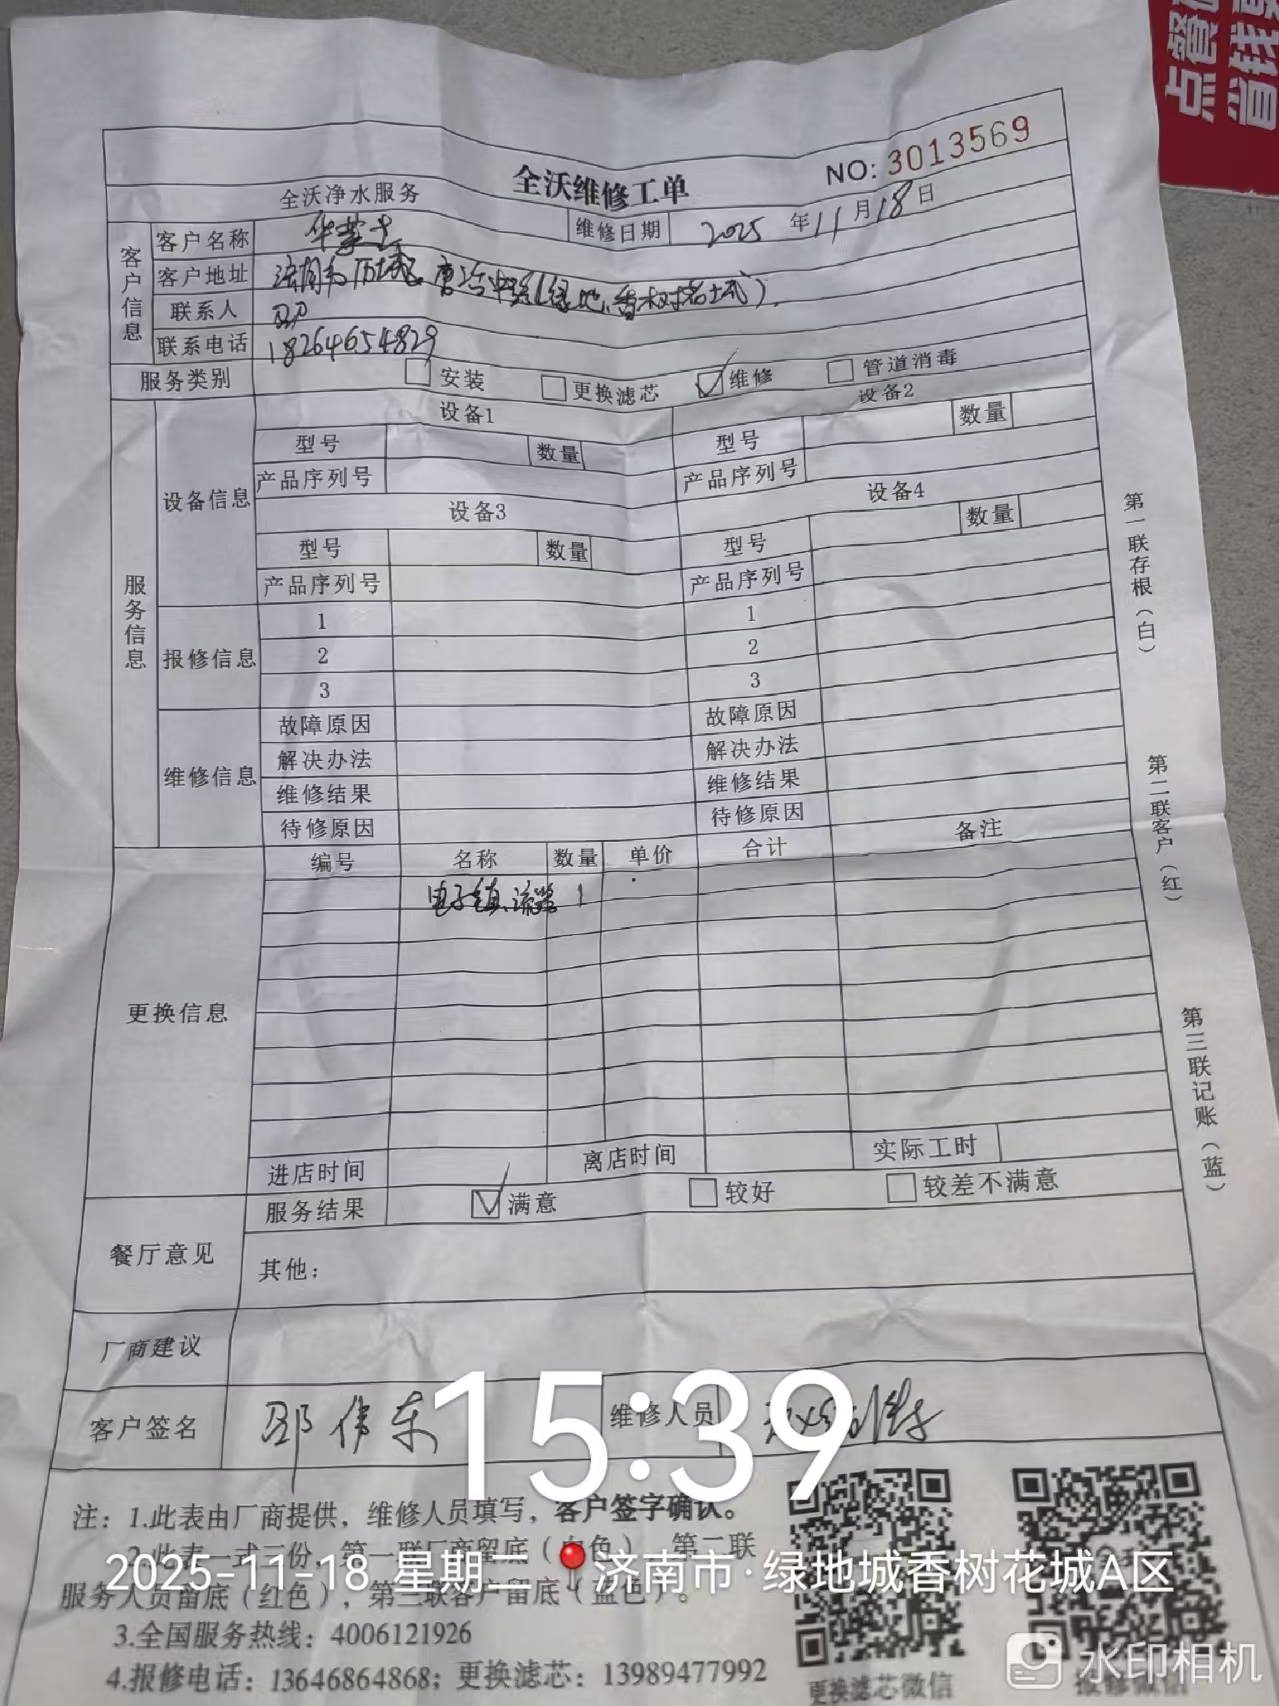 点餐
省钱
NO: 3013569
全沃净水服务 全沃维修工单
客户信息
客户名称 华莱士 维修日期 2025年11月18日
客户地址 济南市历城区唐冶中路(绿地香树花城)
联系人 邵
联系电话 18264654829
服务类别 安装 更换滤芯 ☑维修 管道消毒
服务信息
设备信息
设备1 设备2
型号 数量 型号 数量
产品序列号 产品序列号
设备3 设备4
型号 数量 型号 数量
产品序列号 产品序列号
报修信息
1 1
2 2
3 3
维修信息
故障原因 故障原因
解决办法 解决办法
维修结果 维修结果
待修原因 待修原因
更换信息
编号 名称 数量 单价 合计 备注
电子镇流器 1
进店时间 离店时间 实际工时
餐厅意见
服务结果 ☑满意 较好 较差不满意
其他：
厂商建议
客户签名 邵伟东 维修人员
第一联存根(白)
第二联客户(红)
第三联记账(蓝)
15:39
注：1.此表由厂商提供，维修人员填写，客户签字确认。
2.此表一式三份，第一联厂商留底(白色)，第二联
服务人员留底(红色)，第三联客户留底(蓝色)。
2025-11-18 星期二 济南市·绿地城香树花城A区
3.全国服务热线：4006121926
4.报修电话：13646864868；更换滤芯：13989477992
更换滤芯微信 报修微信
水印相机